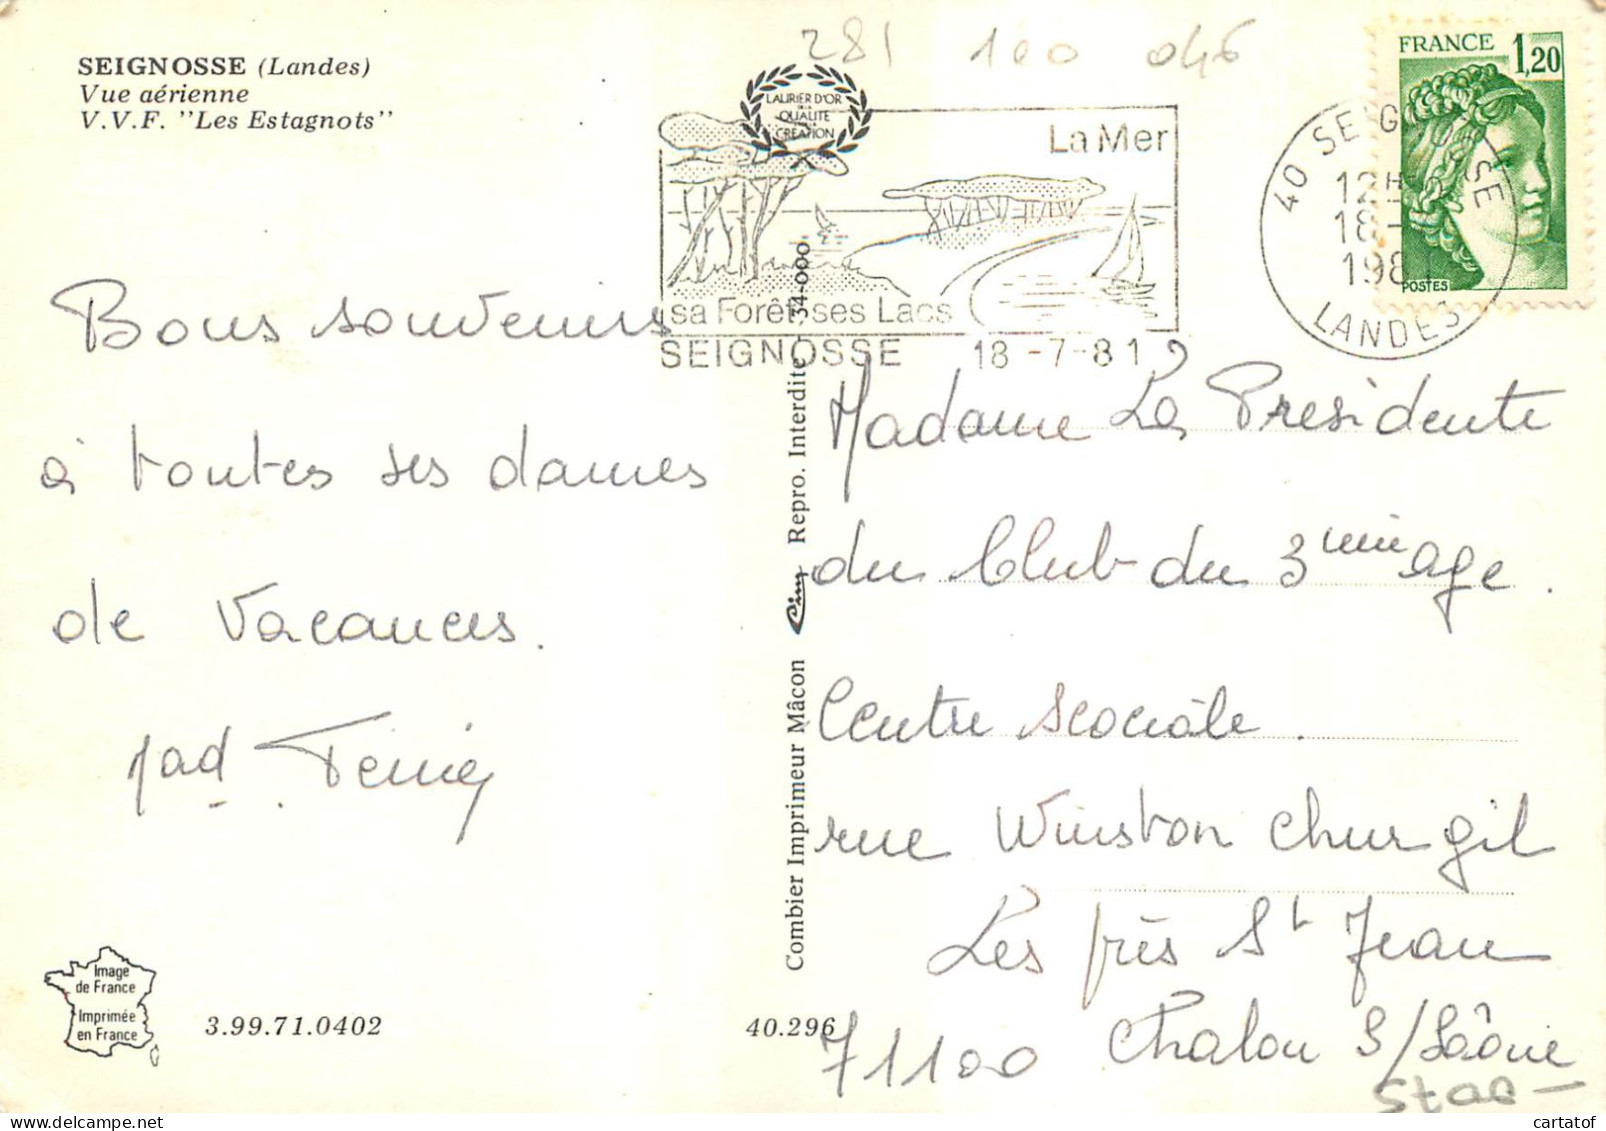 SEIGNOSSE (Landes)
Vue aérienne
V.V.F. "Les Estagnots"
281 100 046
LAURIER D'OR
DE LA
QUALITÉ
CRÉATION
La Mer
sa Forêt ses Lacs
SEIGNOSSE 18 -7-81
FRANCE 1,20
POSTES
40 SEIGNOSSE
12H
18-
1981
LANDES
Bons souvenirs
à toutes ses dames
de Vacances.
Mad.
Madame La Presidente
du Club du 3 age.
Centre scociale.
rue Winston Churgil
Les près St Jean
71100 Chalon S/Saône
Combier Imprimeur Mâcon Cim Repro. Interdite 34-000
Image
de France
Imprimée
en France
3.99.71.0402
40.296
cartatof